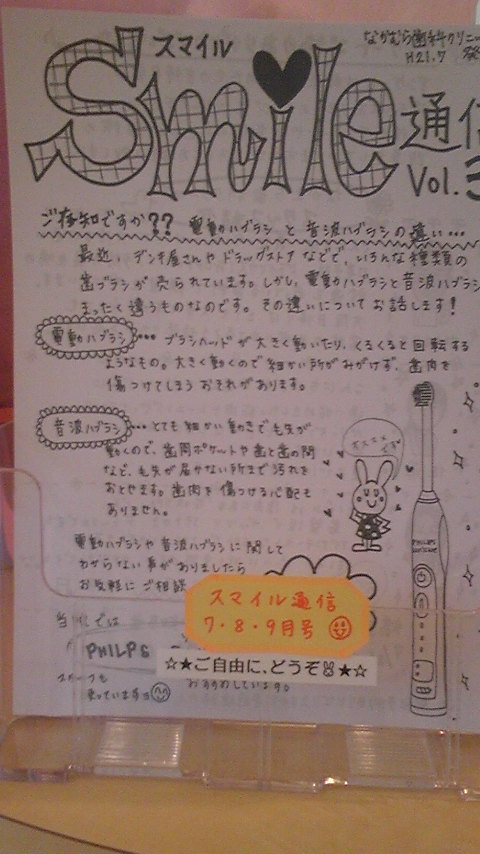 スマイル
なかむら歯科クリニッ
H21.7 発
Smile通信
Vol.3
ご存知ですか?? 電動ハブラシと音波ハブラシの違い…
最近、デンキ屋さんやドラッグストアなどで、いろんな種類の
歯ブラシが売られています。しかし、電動ハブラシと音波ハブラシ
まったく違うものなのです。その違いについてお話します!
電動ハブラシ… ブラシヘッドが大きく動いたり、くるくると回転する
ようなもの。大きく動くので細かい所がみがけず、歯肉を
傷つけてしまうおそれがあります。
音波ハブラシ…とても細かい動きで毛先が
動くので、歯周ポケットや歯と歯の間
など、毛先が届かない所まで汚れを
おとせます。歯肉を傷つける心配も
ありません。
オススメ
電動ハブラシや音波ハブラシに関して
わからない事がありましたら
お気軽にご相談
PHILIPS
sonicare
当院では
PHILPS
スタッフも
使っています
おすすめしています。
スマイル通信
7・8・9月号
☆★ご自由に、どうぞ★☆